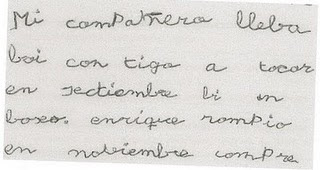 Mi compañera lleba
boi con tigo a tocar
en sectiembre bi un
boxeo. enrique rompio
en nobiembre compre